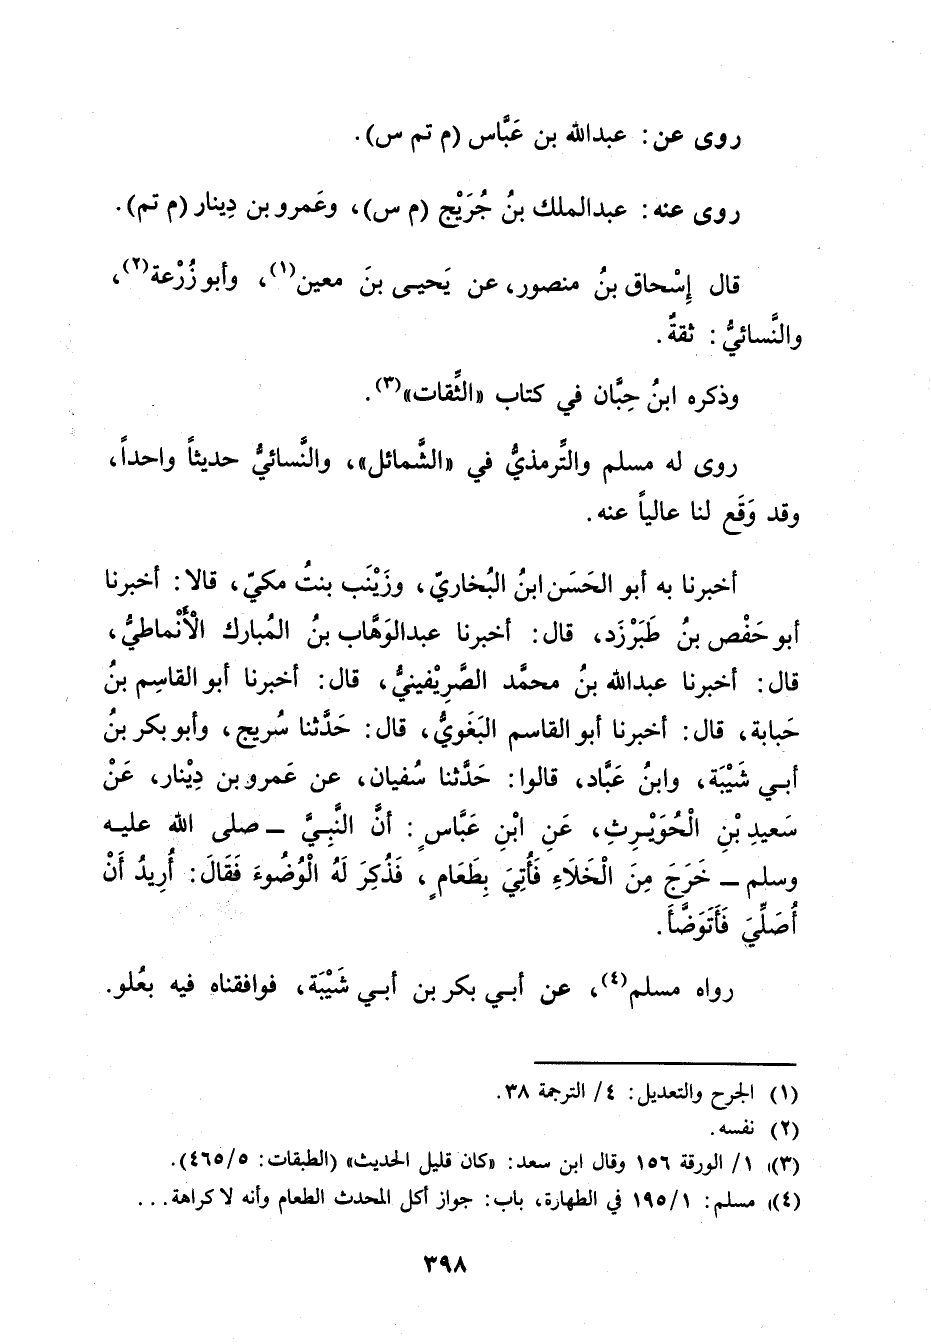 روى عن: عبدالله بن عَبَّاس (م تم س).
روى عنه: عبدالملك بنُ جُرَيْج (م س)، وعَمرو بن دِينار (م تم).
قال إِسْحاق بنُ منصور، عن يَحيى بنَ معين(١)، وأبو زُرْعة(٢)،
والنَّسائيُّ: ثقةٌ.
وذكره ابنُ حِبَّان في كتاب «الثِّقات»(٣).
روى له مسلم والتِّرمذيُّ في «الشَّمائل»، والنَّسائيُّ حديثاً واحداً،
وقد وَقَع لنا عالياً عنه.
أخبرنا به أبو الحَسَن ابنُ البُخاريّ، وزَيْنَب بنتُ مكيّ، قالا: أخبرنا
أبو حَفْص بنُ طَبَرْزَد، قال: أخبرنا عبدالوَهَّاب بنُ المُبارك الْأَنْماطيُّ،
قال: أخبرنا عبدالله بنُ محمَّد الصَّرِيْفينيُّ، قال: أخبرنا أبو القاسِم بنُ
حَبابة، قال: أخبرنا أبو القاسم البَغَويُّ، قال: حَدَّثنا سُريج، وأبو بكر بنُ
أبي شَيْبَة، وابنُ عَبَّاد، قالوا: حَدَّثنا سُفيان، عن عَمرو بن دِيْنار، عَنْ
سَعيدِ بْنِ الْحُوَيْرِثِ، عَنِ ابْنِ عَبَّاسٍ: أنَّ النَّبِيَّ ــ صلى الله عليه
وسلم ــ خَرَجَ مِنَ الْخَلَاءِ فَأُتِيَ بِطَعَامٍ، فَذُكِرَ لَهُ الْوُضُوءَ فَقَالَ: أُرِيدُ أَنْ
أُصَلِّيَ فَأَتَوَضَّأَ.
رواه مسلم(٤)، عن أبي بكر بن أبي شَيْبَة، فوافقناه فيه بعُلو.
(١) الجرح والتعديل: ٤/ الترجمة ٣٨.
(٢) نفسه.
(٣) ١/ الورقة ١٥٦ وقال ابن سعد: «كان قليل الحديث» (الطبقات: ٤٦٥/٥).
(٤) مسلم: ١٩٥/١ في الطهارة، باب: جواز أكل المحدث الطعام وأنه لا كراهة...
٣٩٨